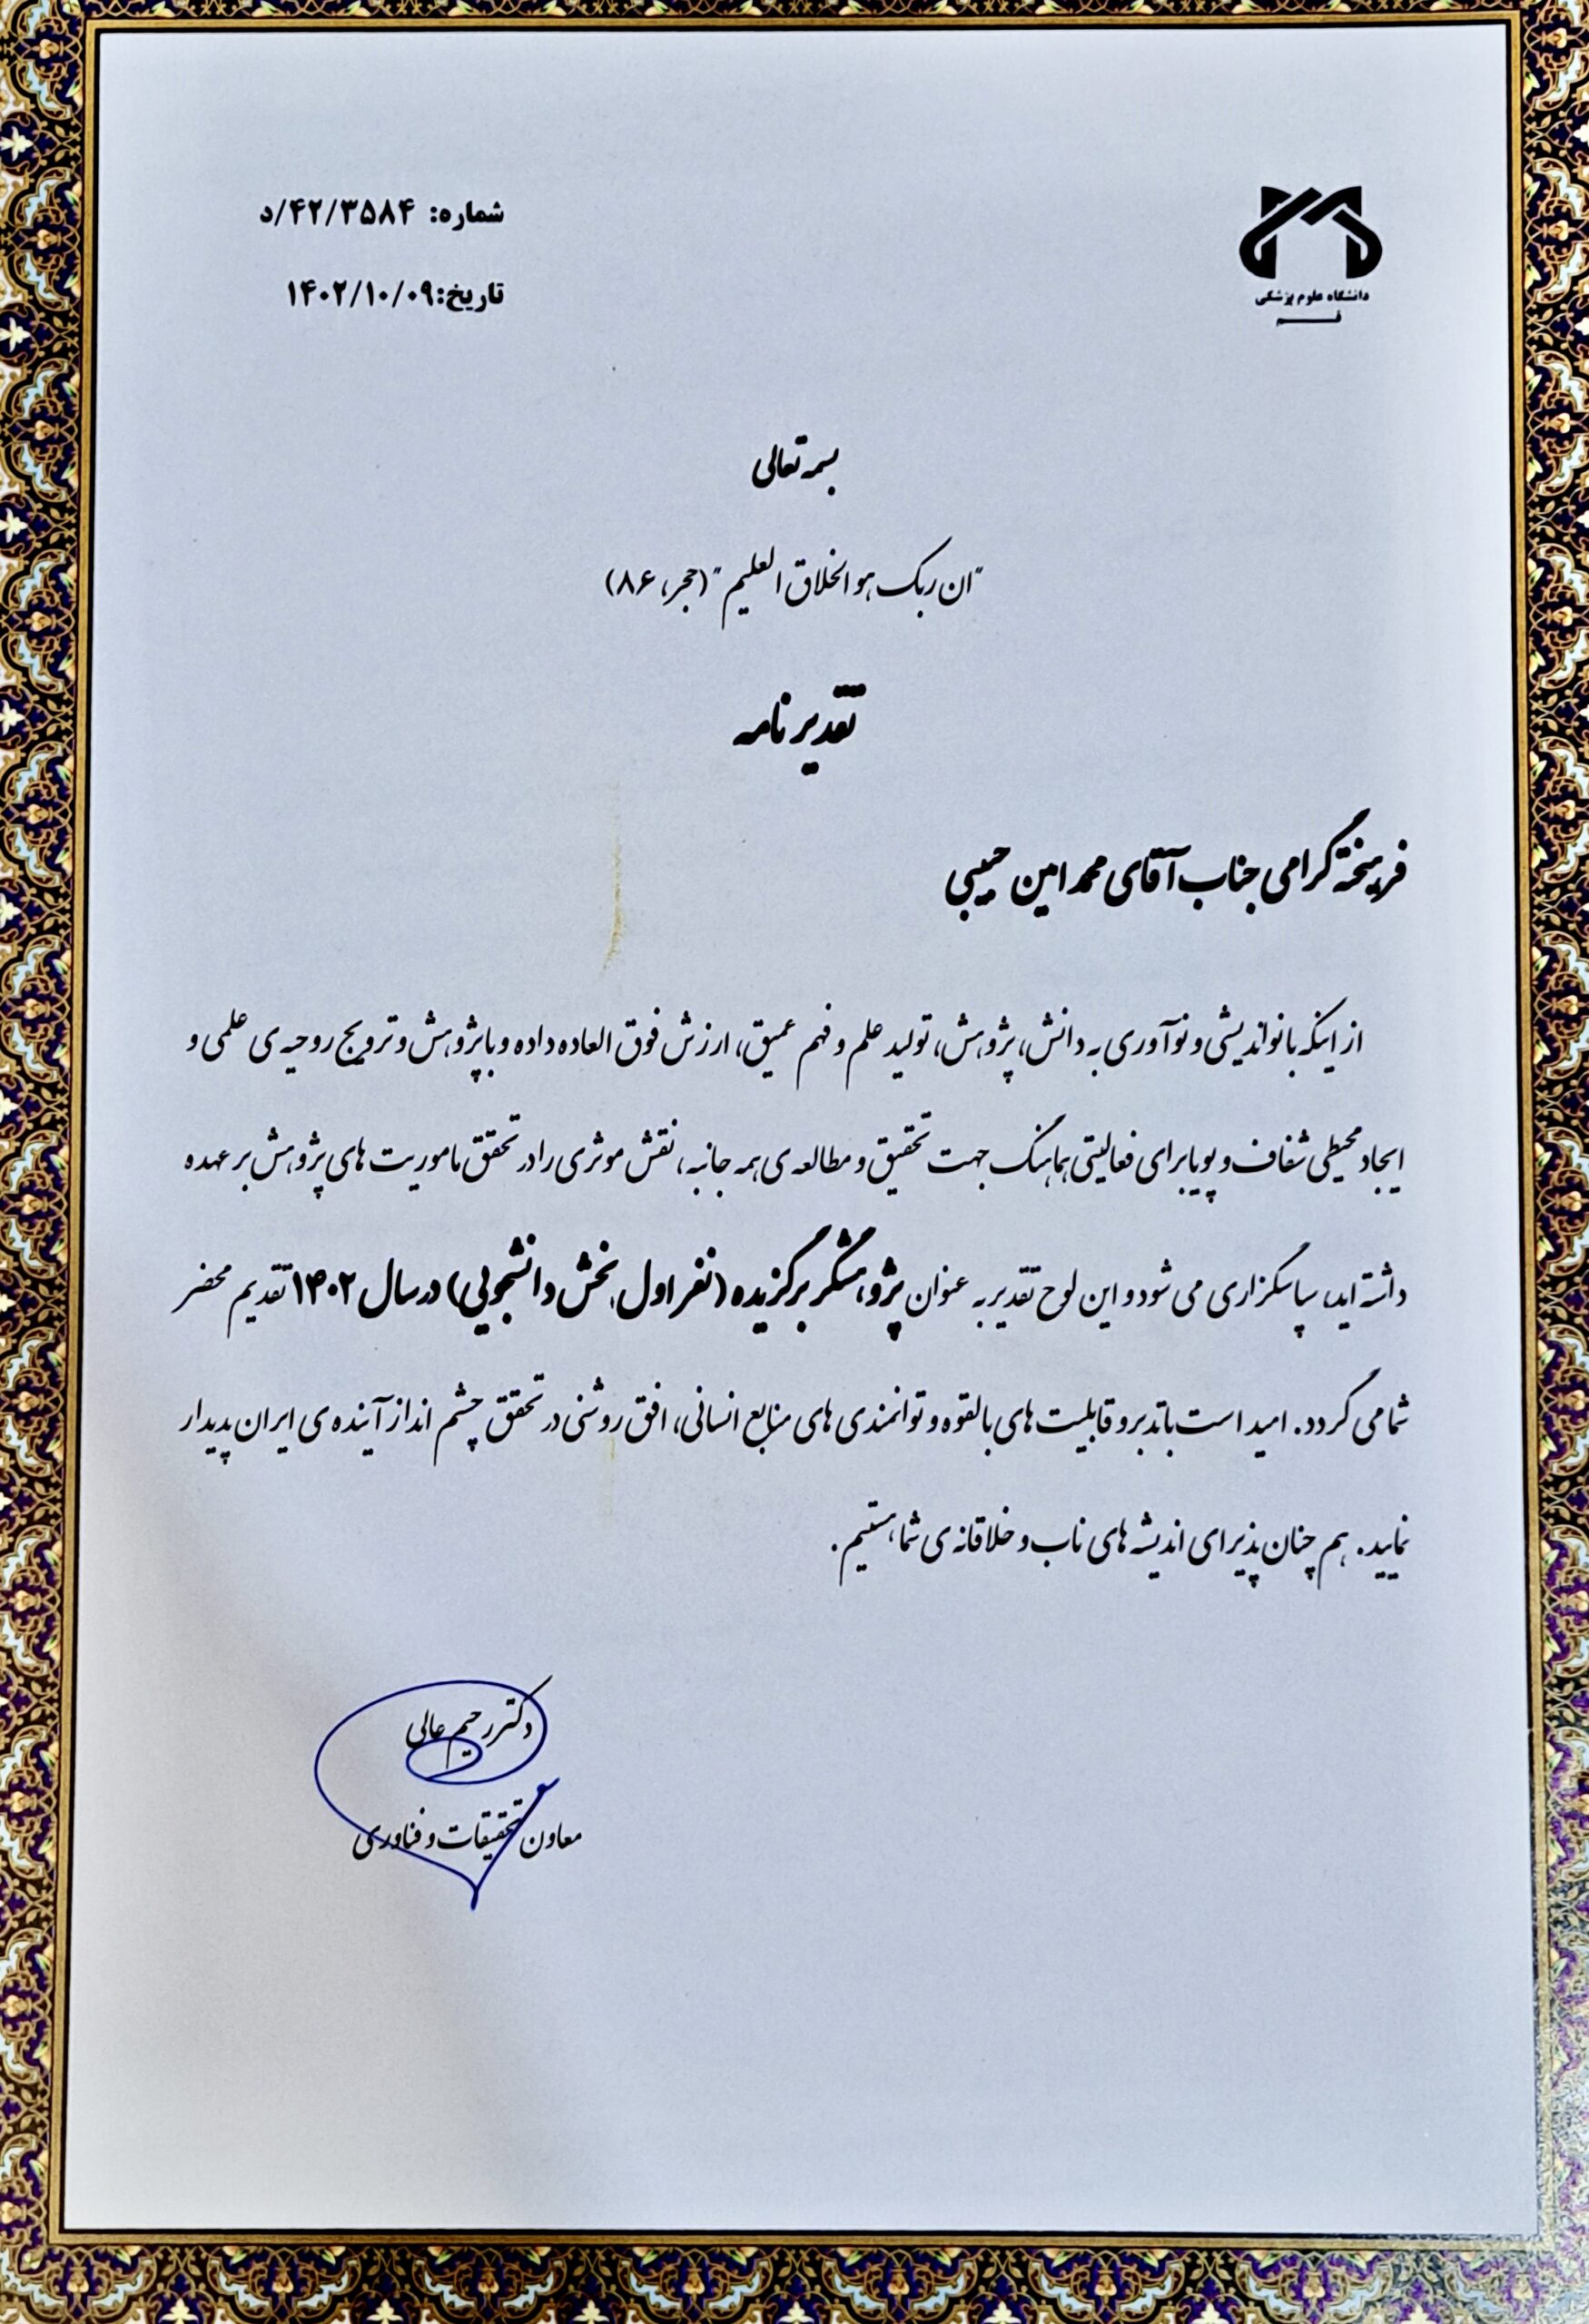 دانشگاه علوم پزشکی
قم
شماره: ۴۲/۳۵۸۴/د
تاریخ:۱۴۰۲/۱۰/۰۹
بسمه تعالی
"ان ربک هو الخلاق العلیم" (حجر، ۸۶)
تقدیرنامه
فرهیخته گرامی جناب آقای محمد امین حبیبی
از اینکه با نواندیشی و نوآوری به دانش، پژوهش، تولید علم و فهم عمیق، ارزش فوق العاده داده و با پژوهش و ترویج روحیه ی علمی و
ایجاد محیطی شفاف و پویا برای فعالیتی هماهنگ جهت تحقیق و مطالعه ی همه جانبه، نقش موثری را در تحقق ماموریت های پژوهش بر عهده
داشته اید، سپاسگزاری می شود و این لوح تقدیر به عنوان پژوهشگر برگزیده (نفر اول بخش دانشجویی) در سال ۱۴۰۲ تقدیم محضر
شما می گردد. امید است با تدبر و قابلیت های بالقوه و توانمندی های منابع انسانی، افق روشنی در تحقق چشم انداز آینده ی ایران پدیدار
نمایید. هم چنان پذیرای اندیشه های ناب و خلاقانه ی شما هستیم.
دکتر رحیم عالی
معاون تحقیقات و فناوری